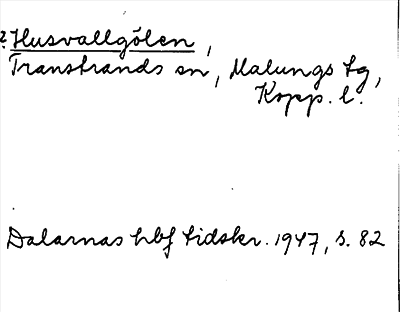 ? Husvallgölen,
Transtrands sn, Malungs tg,
Kopp. l.
Dalarnas hbf tidskr. 1947, s. 82